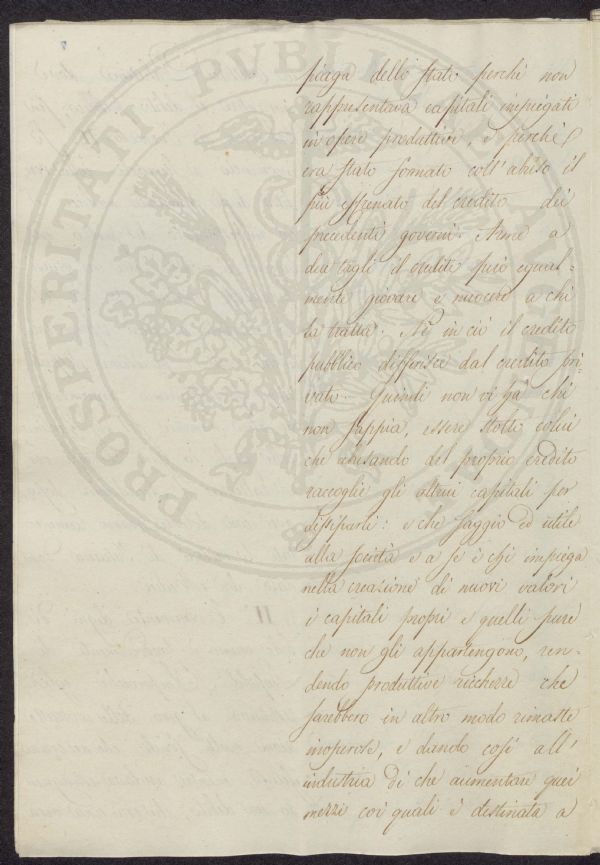 piaga dello stato perchè non
rappresentava capitali impiegati
in opere produttive, e perchè
era stato formato coll'abuso il
più effrenato del credito dei
precedenti governi. Arme a
due tagli il credito può egual-
mente giovare e nuocere a chi
la tratta. Nè in ciò il credito
pubblico differisce dal credito pri-
vato. Quindi non vi ha chi
non sappia, essere stolto colui
che abusando del proprio credito
raccoglie gli altrui capitali per
dissiparli: e che saggio ed utile
alla società e a se è chi impiega
nella creazione di nuovi valori
i capitali propri e quelli pure
che non gli appartengono, ren-
dendo produttive ricchezze che
sarebbero in altro modo rimaste
inoperose, e dando così all'
industria di che aumentare quei
mezzi coi quali è destinata a
PROSPERITATI PVBLICAE